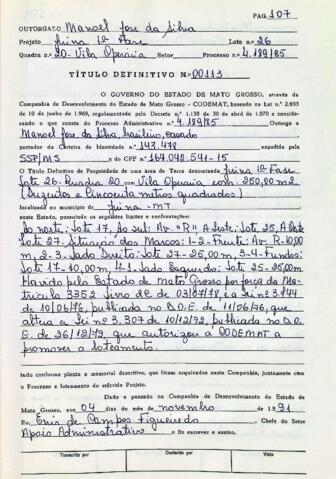 PAG. 107
OUTORGADO Manoel Jose da Silva
Projeto Juina 1ª Fase Lote n.º 26
Quadra n.º 20- Vila Operária Setor Processo n.º 4.189/85
TÍTULO DEFINITIVO N.º 00113
O GOVERNO DO ESTADO DE MATO GROSSO, através da
Companhia de Desenvolvimento do Estado de Mato Grosso - CODEMAT, baseado na Lei n.º 2.933
de 10 de junho de 1969, regulamentada pelo Decreto n.º 1.138 de 30 de abril de 1970 e conside-
rando o que consta do Processo Administrativo n.º 4.189/85 Outorga a
Manoel Jose da Silva, brasileiro, casado
portador da Carteira de Identidade n.º 143.478 expedida pela
SSP/MS e do CPF n.º 164.048.541-15
O Título Definitivo de Propriedade de uma Área de Terra denominada Juina 1ª Fase
Lote 26-Quadra 20 com Vila Operaria com 250,00 m2
(Duzentos e Cincoenta metros quadrados)
localizada no município de Juina - MT
neste Estado, possuindo os seguintes limites e confrontações:
Ao norte: Lote 17, Ao Sul: Av "R", A Leste: Lote 25, A Oeste
Lote 27. Situação dos Marcos: 1-2- Frente: Av R-10,00
m, 2-3. Lado Direito: Lote 27-25,00m, 3-4-Fundos:
Lote 17-10,00m, 4-1. Lado Esquerdo: Lote 25-25,00m
Havido pelo Estado de Mato Grosso por força da Ma-
tricula 3352 Livro 2C de 03/07/78, e a Lei nº 3.744
de 10/06/76, publicada no D.O.E. de 11/06/76, que
altera a Lei nº 3.307 de 10/12/72, publicada no D.O.
E. de 26/12/79 que autorizou a CODEMAT a
promover o loteamento.
tudo conforme planta e memorial descritivo, que ficam arquivados nesta Companhia, juntamente com
o Processo e loteamento do referido Projeto.
Dado e passado na Companhia de Desenvolvimento do Estado de
Mato Grosso, aos 04 dias do mês de novembro de 1991
Eu, Enis de Campos Figueiredo Chefe do Setor
Apoio Administrativo o fiz escrever e assino.
Transcrito por Conferido por Visto